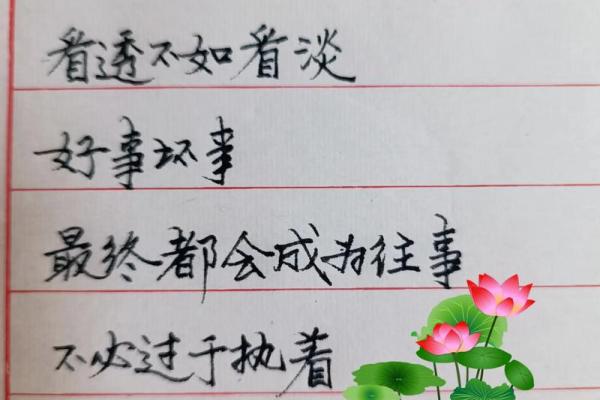 看透不如看淡
好事坏事
最终都会成为往事
不必过于执着